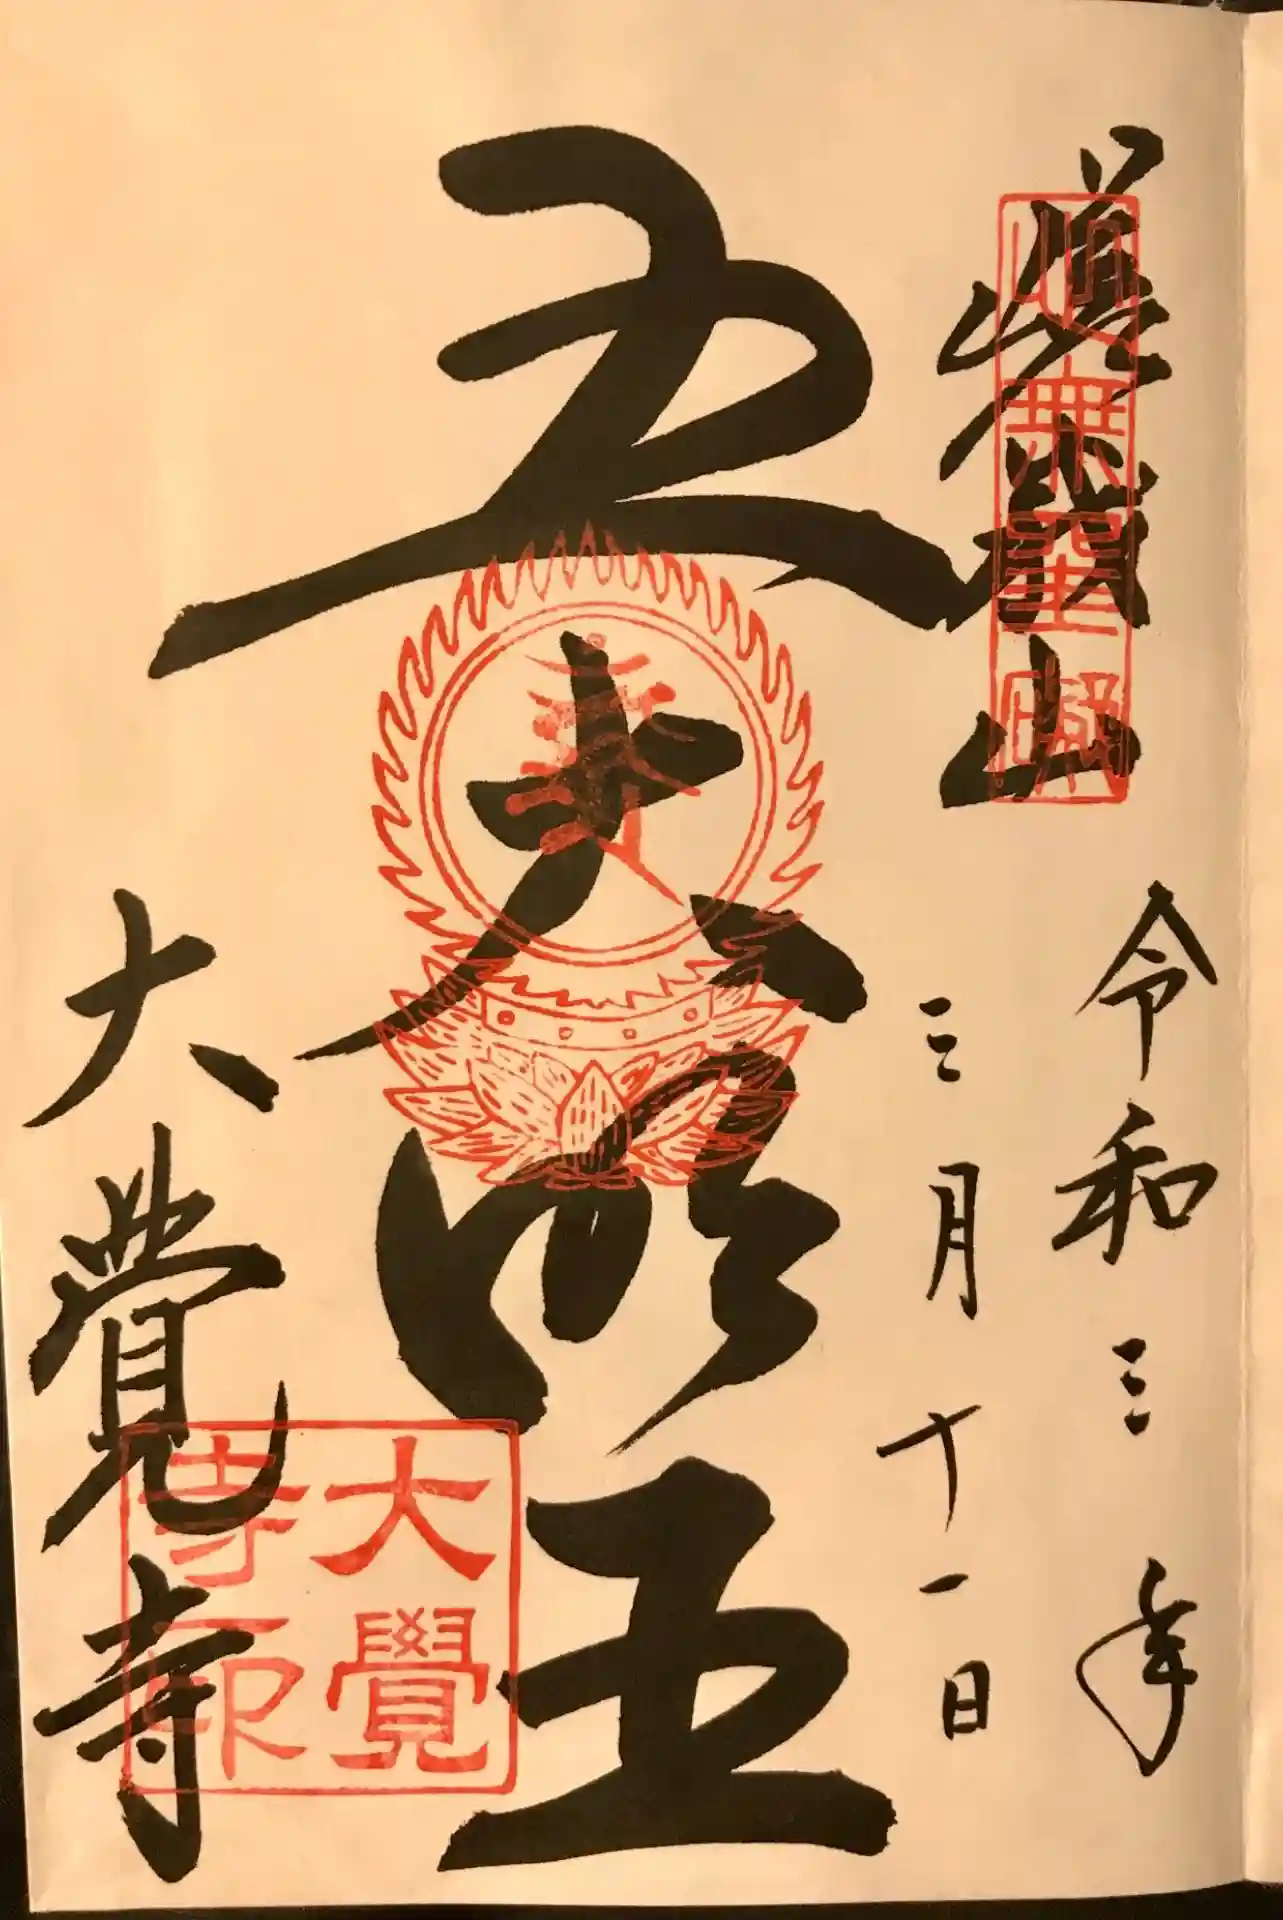 嵯峨山
心無罣礙
令和三年
三月十一日
五大明王
大覺寺
大覺寺印